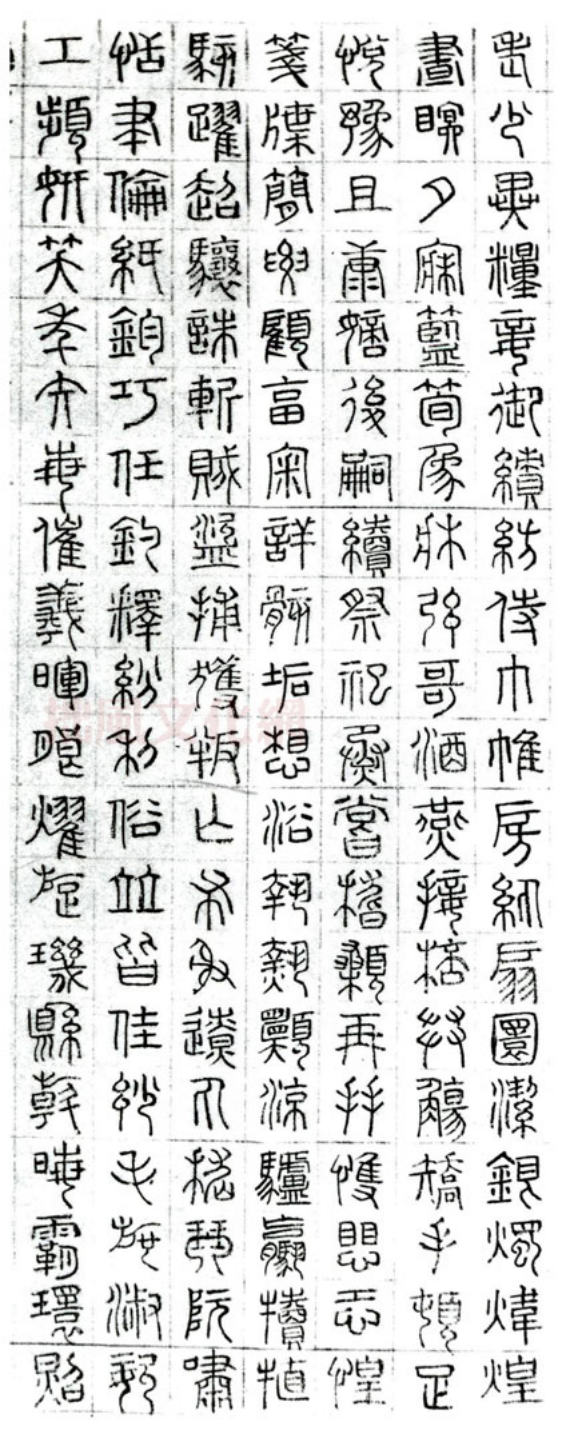 老少異糧妾御績紡侍巾帷房紈扇圜潔銀燭煒煌
晝瞑夕寐籃筍象牀弦哥酒燕接桮舉觴矯手頓足
悅豫且康嫡後嗣續祭祀烝嘗稽顙再拜愯愳恐惶
箋牒簡要顧畗宷詳骸垢想浴執熱願涼驢驘犢犆
駭躍超驤誅斬賊盜捕獲叛亡布射遼丸嵇琴阮嘯
恬聿倫紙鈞巧任釣釋紛利俗竝皆佳妙毛施淑姿
工顰妍笑年矢每催羲暉朗燿旋璣縣斡晦霸環照